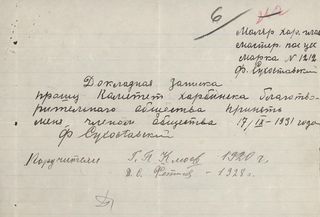 6
Маляр хар. глав
мастер. пас цех
марка № 1212
Ф. Сухоставский
Докладная записка
прошу Комитет харбинска благотво-
рительного общества принять
меня, членом общества 17/IX – 1931 года
Ф Сухоставский
Поручители Г. П. 1920 г.
– 1928 г.